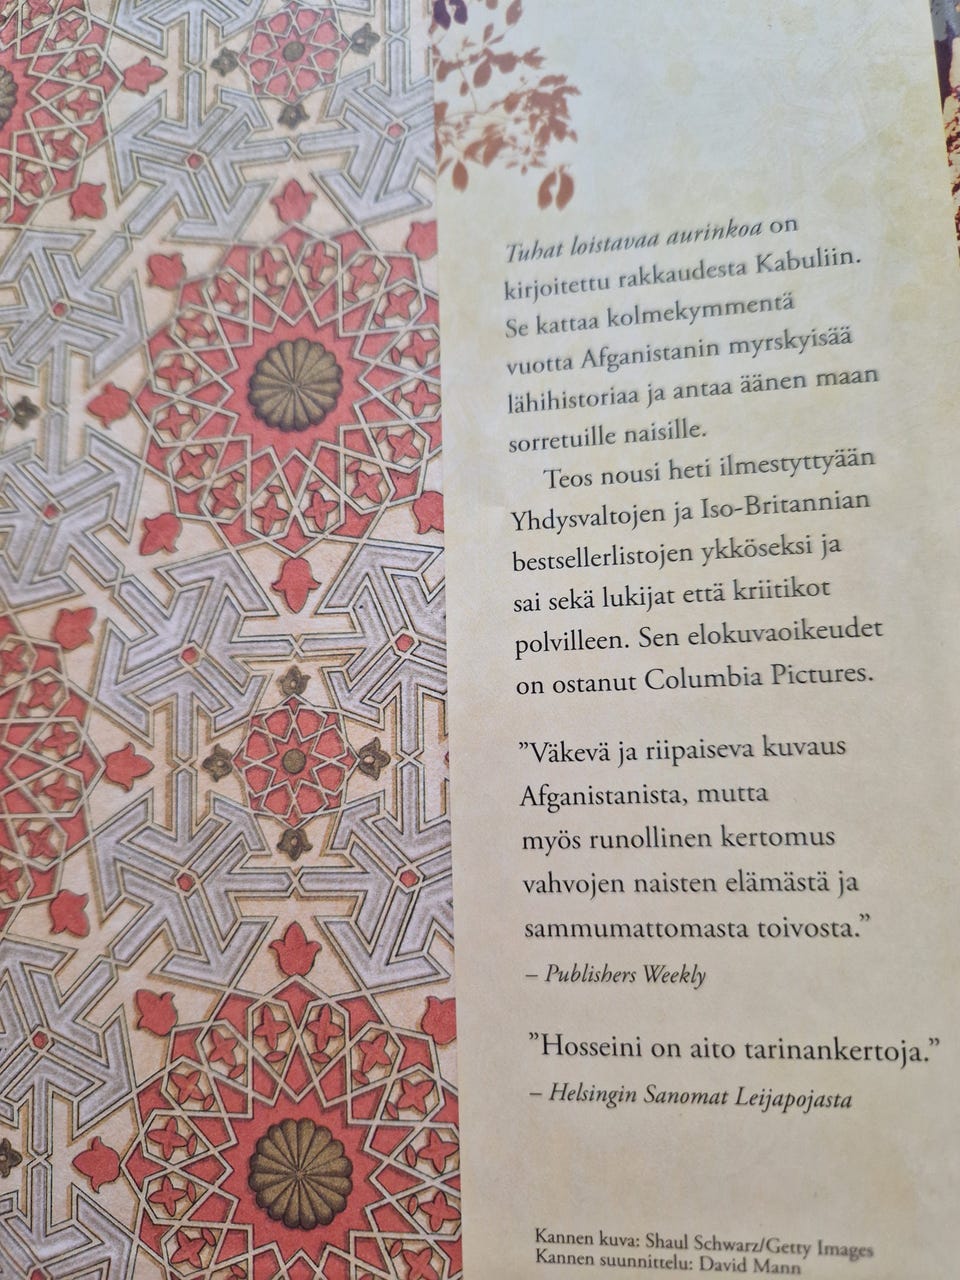 Tuhat loistavaa aurinkoa on
kirjoitettu rakkaudesta Kabuliin.
Se kattaa kolmekymmentä
vuotta Afganistanin myrskyisää
lähihistoriaa ja antaa äänen maan
sorretuille naisille.
Teos nousi heti ilmestyttyään
Yhdysvaltojen ja Iso-Britannian
bestsellerlistojen ykköseksi ja
sai sekä lukijat että kriitikot
polvilleen. Sen elokuvaoikeudet
on ostanut Columbia Pictures.
”Väkevä ja riipaiseva kuvaus
Afganistanista, mutta
myös runollinen kertomus
vahvojen naisten elämästä ja
sammumattomasta toivosta.”
– Publishers Weekly
”Hosseini on aito tarinankertoja.”
– Helsingin Sanomat Leijapojasta
Kannen kuva: Shaul Schwarz/Getty Images
Kannen suunnittelu: David Mann